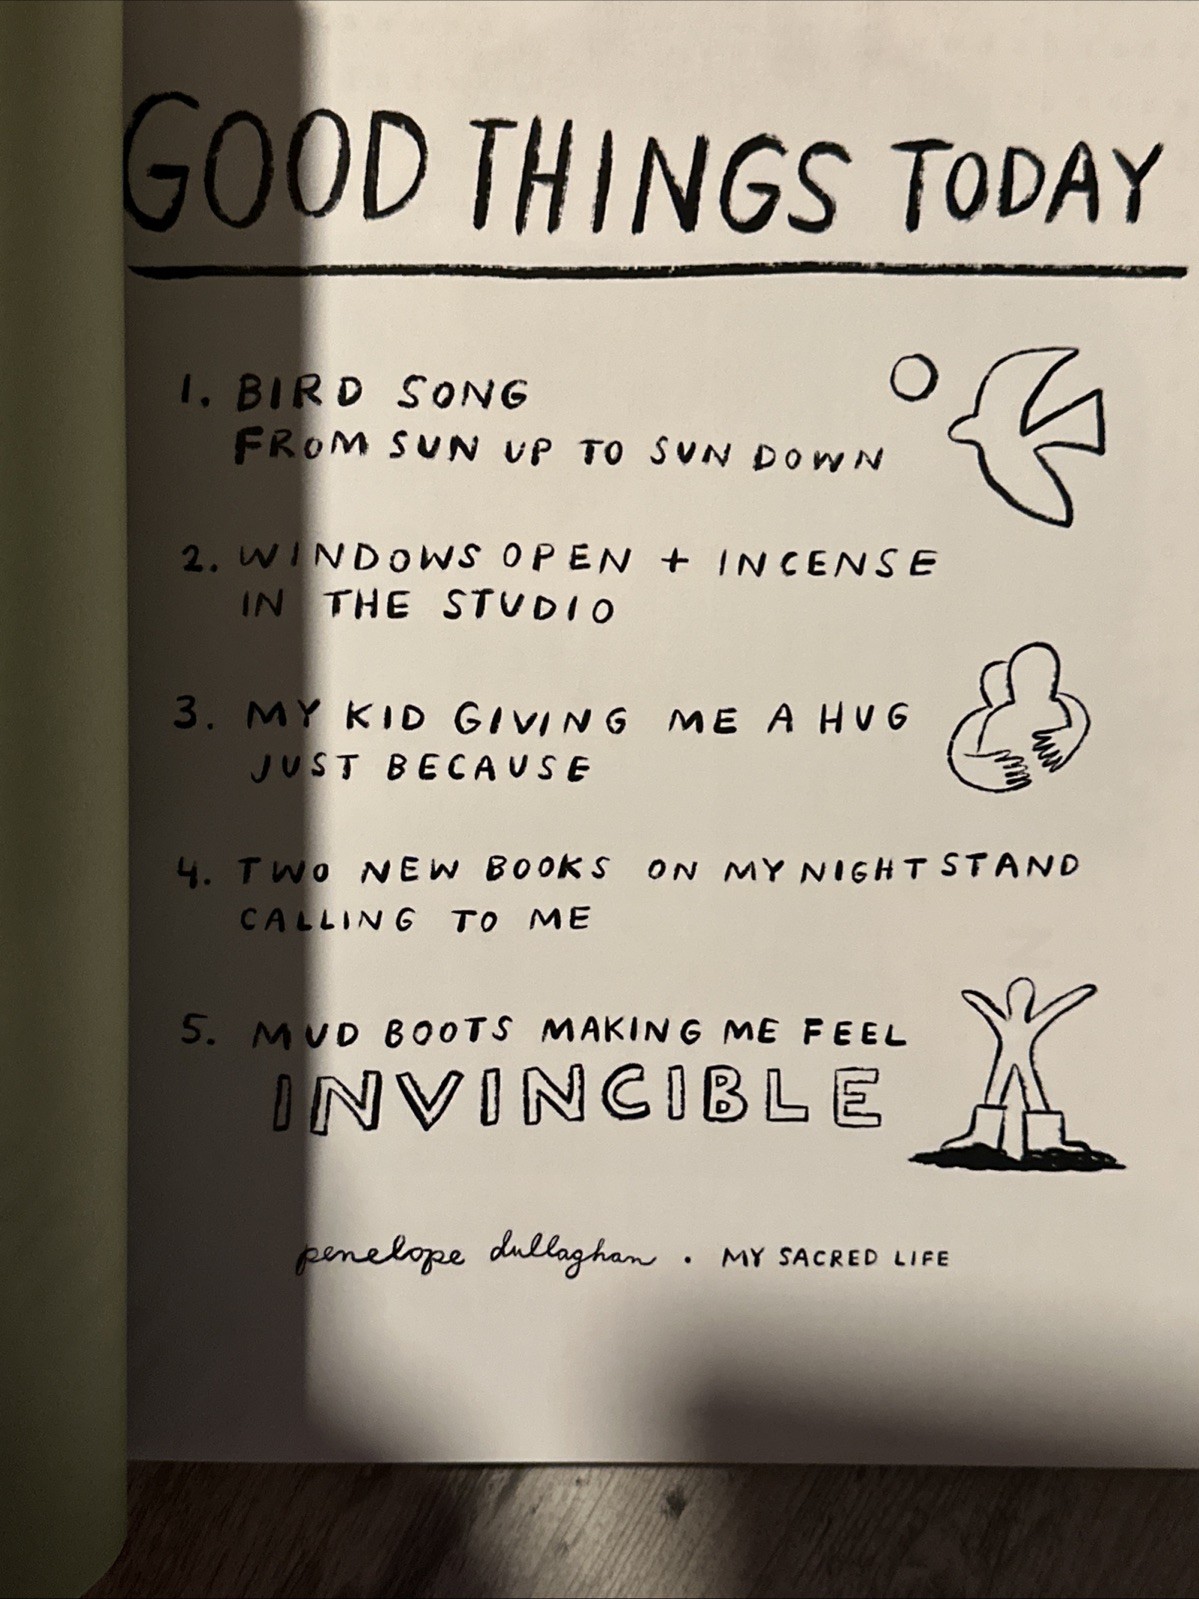 GOOD THINGS TODAY
1. BIRD SONG
FROM SUN UP TO SUN DOWN
2. WINDOWS OPEN + INCENSE
IN THE STUDIO
3. MY KID GIVING ME A HUG
JUST BECAUSE
4. TWO NEW BOOKS ON MY NIGHTSTAND
CALLING TO ME
5. MUD BOOTS MAKING ME FEEL
INVINCIBLE
penelope dullaghan . MY SACRED LIFE